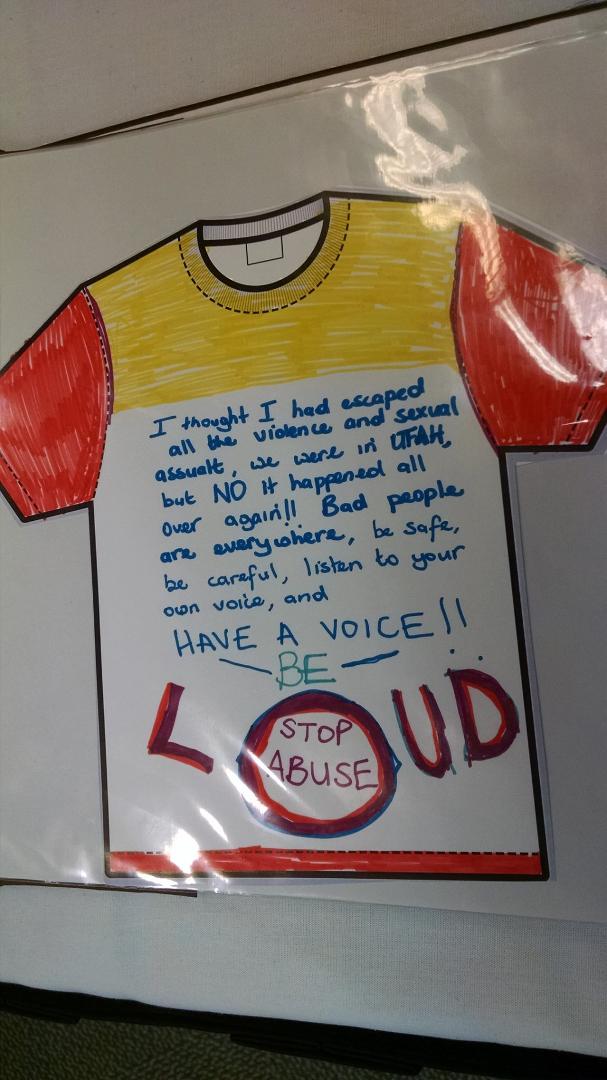 I thought I had escaped
all the violence and sexual
assualt, we were in UTAH,
but NO it happened all
over again!! Bad people
are everywhere, be safe,
be careful, listen to your
own voice, and
HAVE A VOICE!!
BE
LOUD
STOP
ABUSE